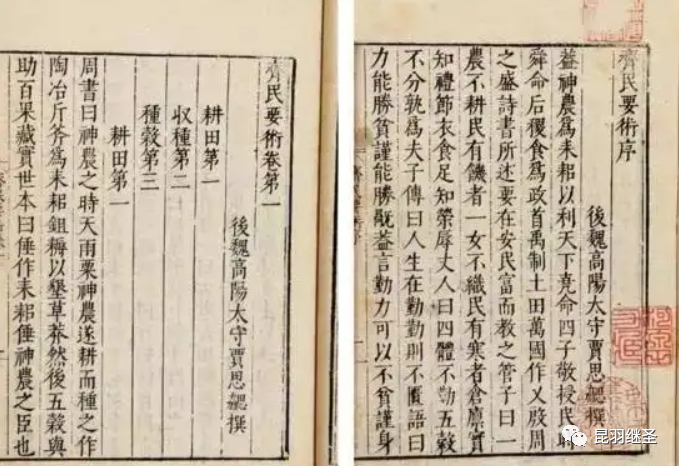 齊民要術序
後魏高陽太守賈思勰撰
葢神農爲耒耜以利天下堯命四子敬授民時
舜命后稷食爲政首禹制土田萬國作乂殷周
之盛詩書所述要在安民富而教之管子曰一
農不耕民有饑者一女不織民有寒者倉廩實
知禮節衣食足知榮辱丈人曰四體不勤五穀
不分孰爲夫子傳曰人生在勤勤則不匱語曰
力能勝貧謹能勝禍葢言勤力可以不貧謹身
齊民要術卷第一
後魏高陽太守賈思勰撰
耕田第一
収種第二
種穀第三
耕田第一
周書曰神農之時天雨粟神農遂耕而種之作
陶冶斤斧爲耒耜鉏耨以墾草莽然後五穀與
助百果藏實世本曰倕作耒耜倕神農之臣也
昆羽继圣